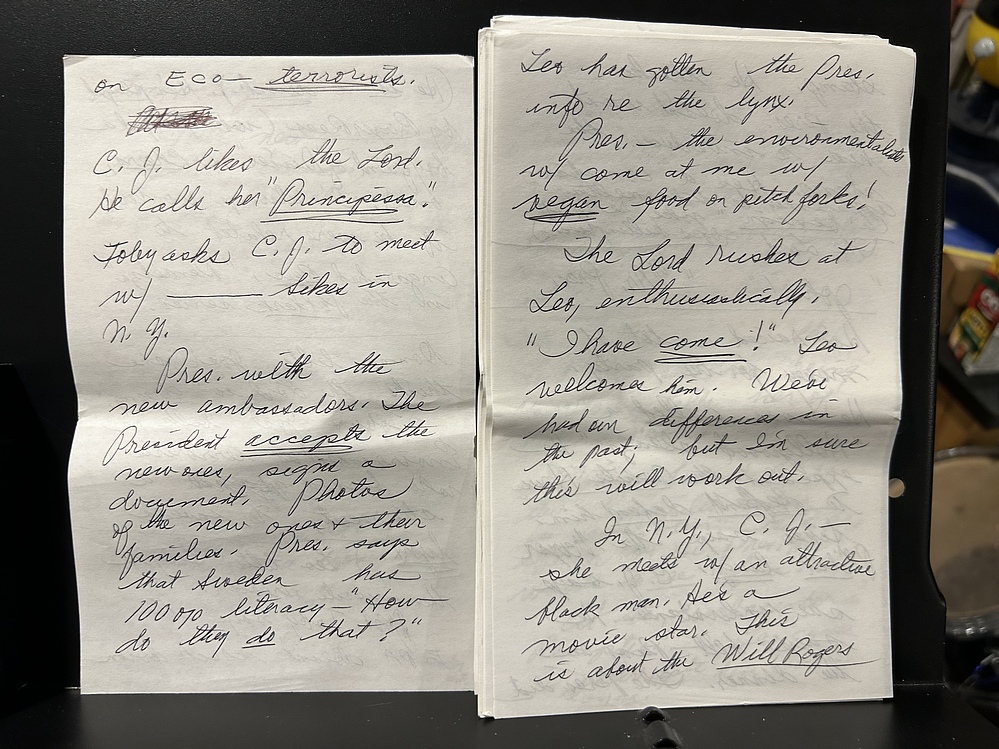 on Eco- terrorists.
C. J. likes the Lord.
He calls her "Principessa".
Toby asks C. J. to meet
w/ ______ Sikes in
N. Y.
Pres. with the
new ambassadors. The
President accepts the
new ones, signs a
document. Photos
of the new ones & their
families. Pres. says
that Sweden has
100% literacy - "How
do they do that?"
Leo has gotten the Pres.
info re the lynx.
Pres. - the environmentalists
w/ come at me w/
vegan food on pitch forks!
The Lord rushes at
Leo, enthusiastically.
"I have come!" Leo
welcomes him. We've
had our differences in
the past; but I'm sure
this will work out.
In N.Y., C. J. -
she meets w/ an attractive
black man. He's a
movie star. This
is about the Will Rogers